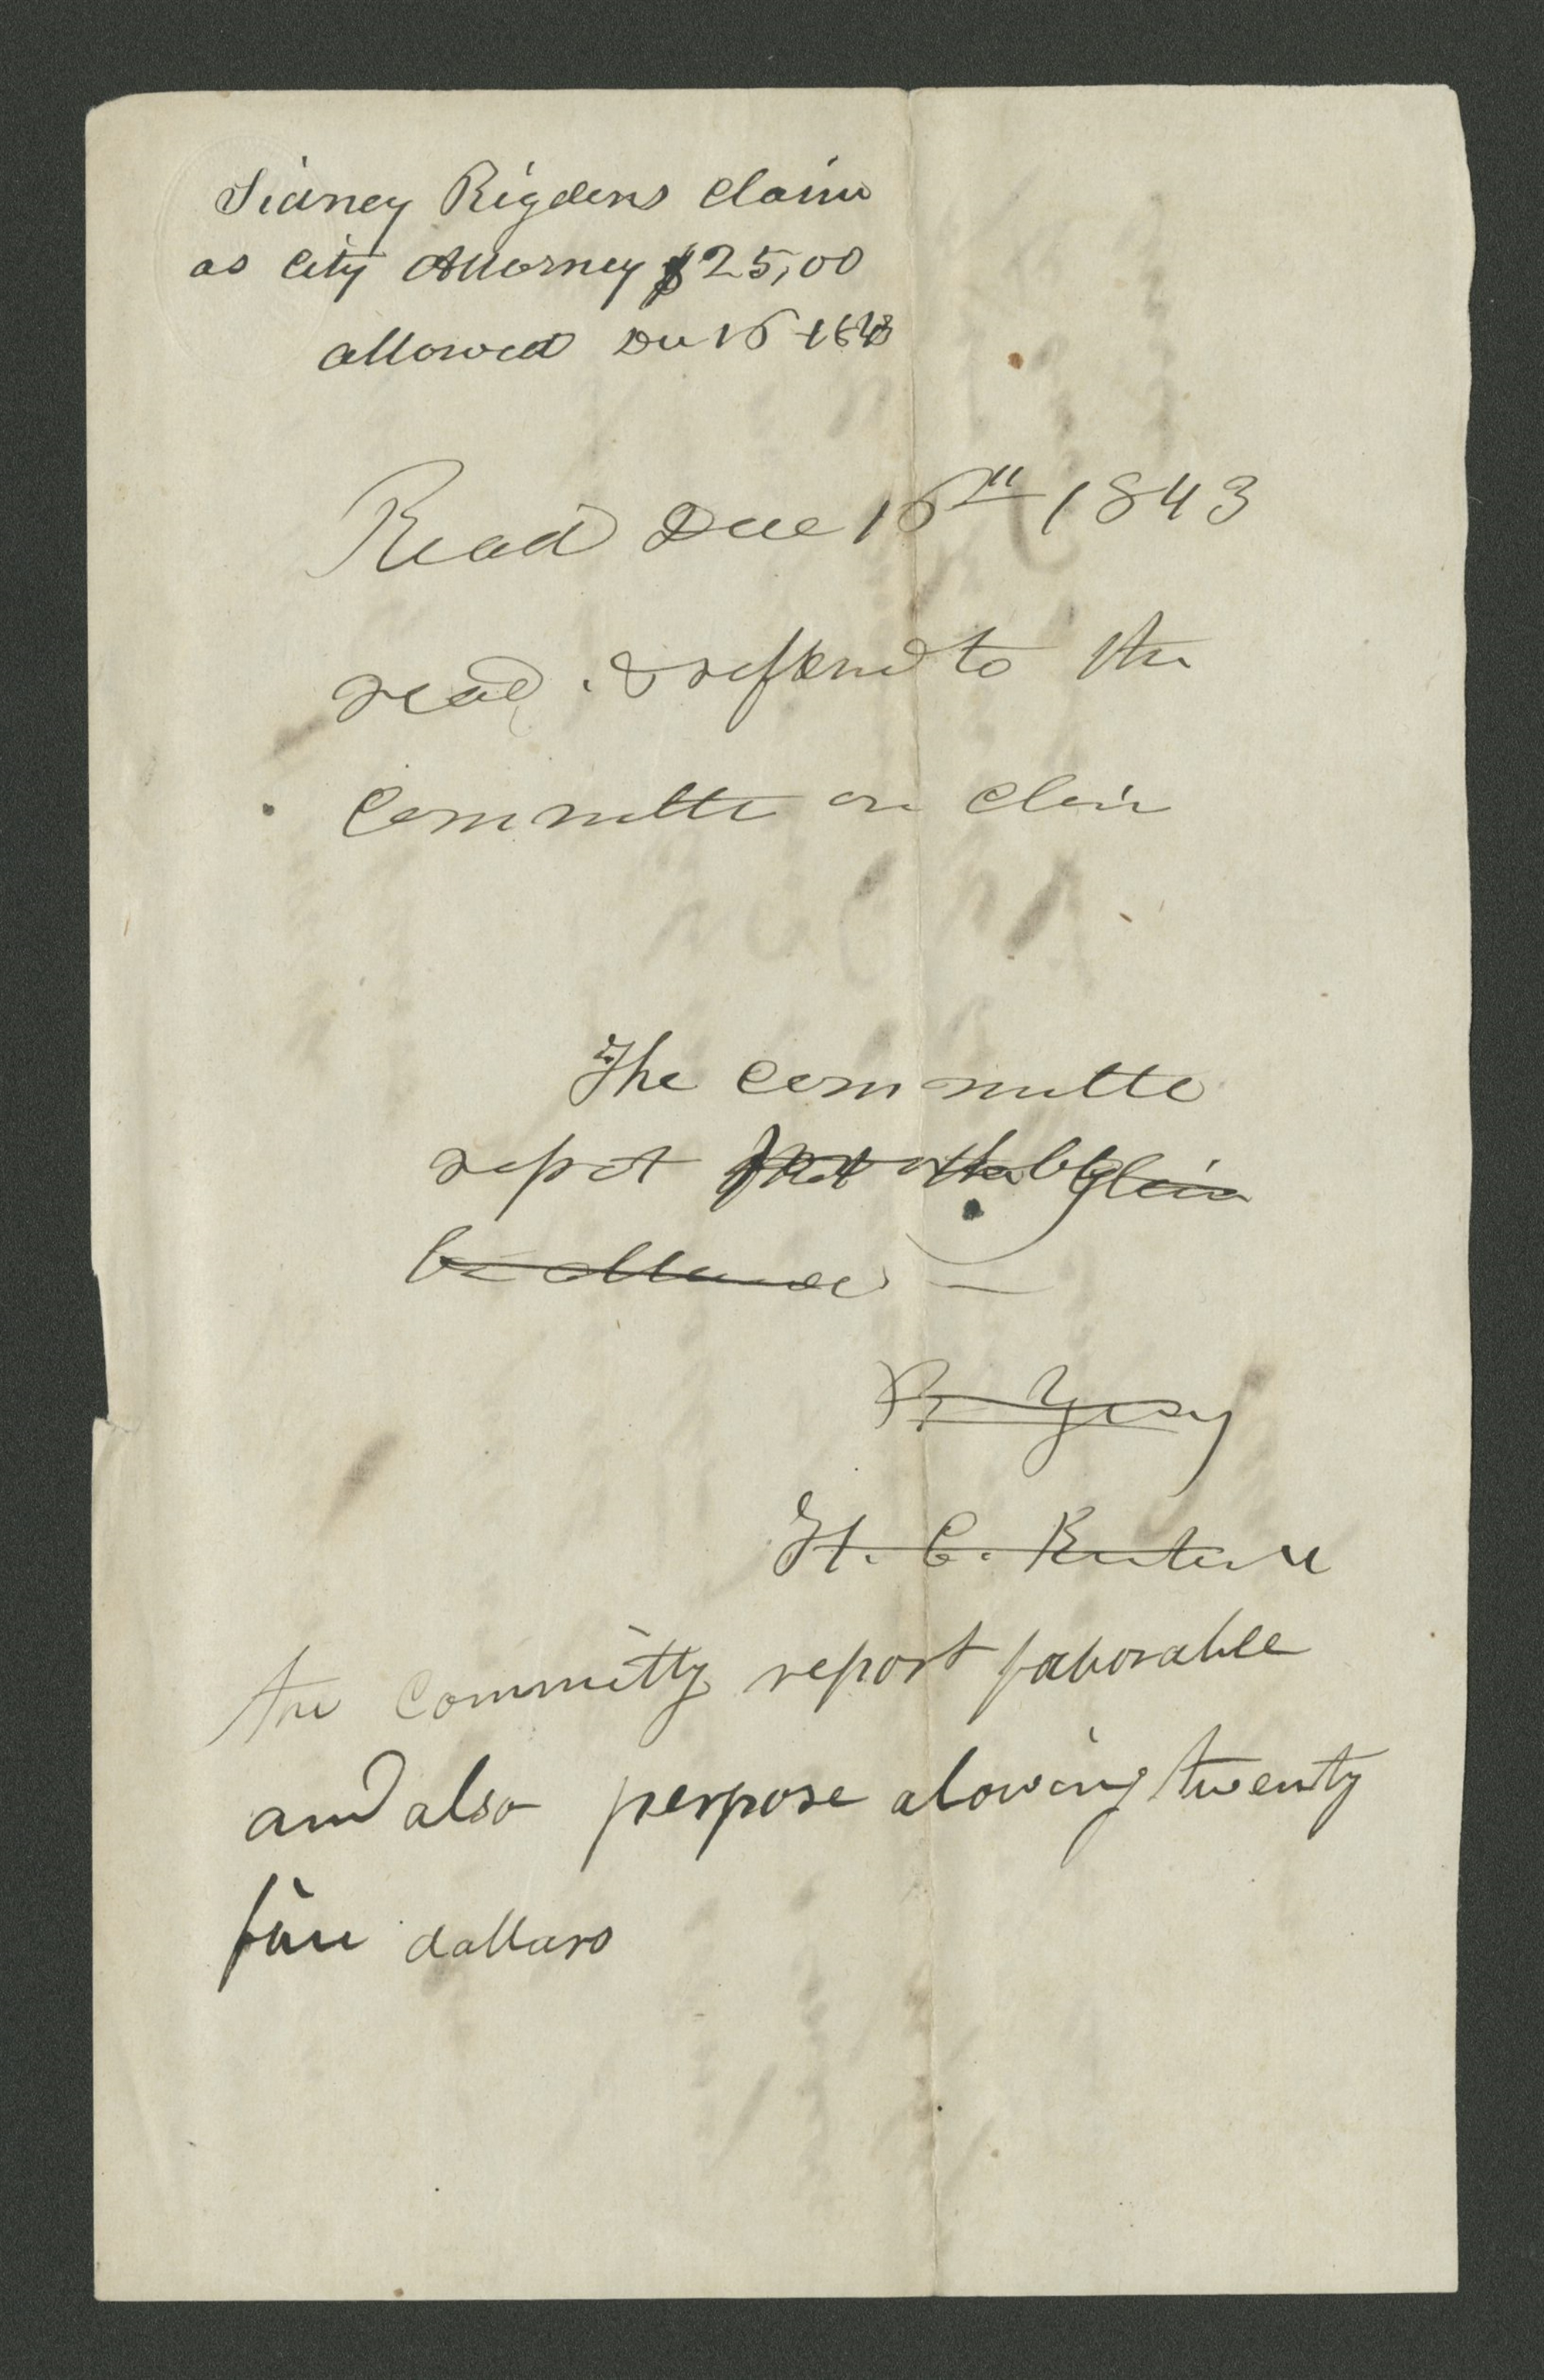 Sidney Rigdens Claim
as City Attorney $25,00
allowed Dec 16 1843
Read Dec 16th 1843
read. & referred to the
Committe on Claim
The committe
report that the Claim
be allowed —
B Young
H. C. Kimball
the Committy report faborable
and also perpose alowing twenty
five dallars